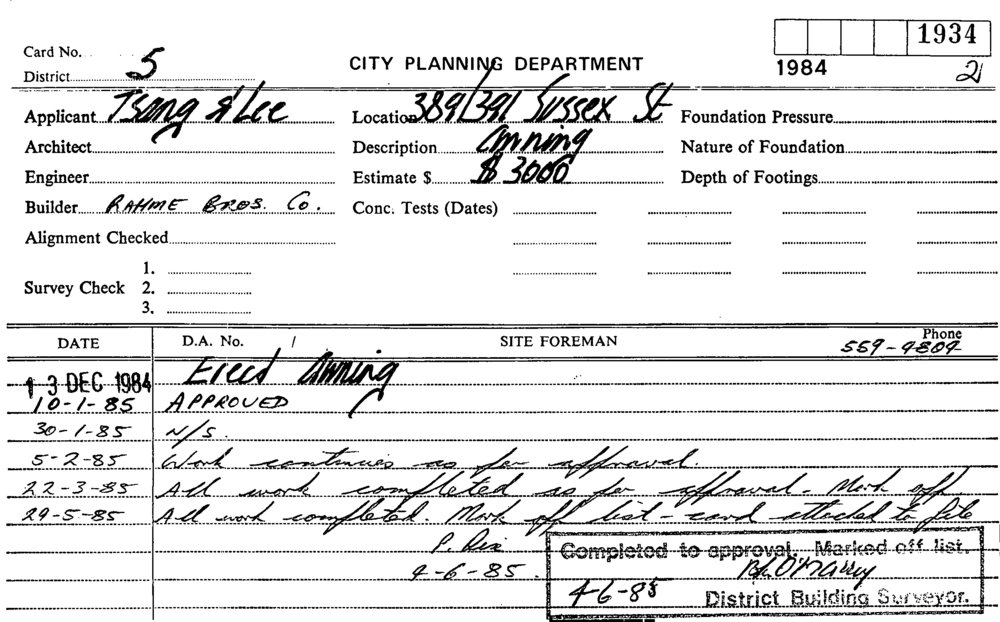 1934
Card No.
5
CITY PLANNING DEPARTMENT
1984
2
District
Applicant Tsang & Lee
Location 389/391 Sussex St
Foundation Pressure
Architect
Description Awning
Nature of Foundation
Engineer
Estimate $ $ 3000
Depth of Footings
Builder RAHME BROS. Co.
Conc. Tests (Dates)
Alignment Checked
1.
Survey Check 2.
3.
DATE D.A. No. / SITE FOREMAN Phone
559-4804
13 DEC 1984 Erect Awning
10-1-85 APPROVED
30-1-85 N/S.
5-2-85 Work continues as per approval.
22-3-85 All work completed as per approval. Mark off
29-5-85 All work completed. Mark off list - card attached to file
P.
4-6-85.
Completed to approval. Marked off list.
4-6-85
District Building Surveyor.